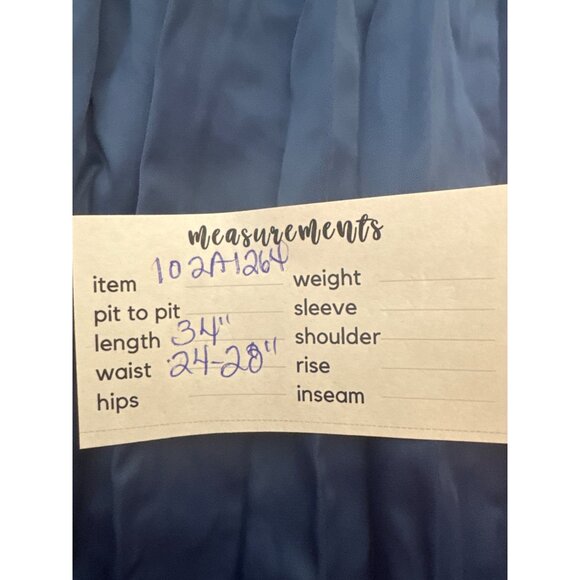 measurements
item 102A1264
pit to pit
length 34"
waist 24-28"
hips
weight
sleeve
shoulder
rise
inseam